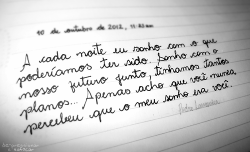 10 de outubro de 2012, 11:32 am
A cada noite eu sonho com o que
poderíamos ter sido. Sonho com o
nosso futuro junto, tínhamos tantos
planos... Apenas acho que você nunca
percebeu que o meu sonho era você.